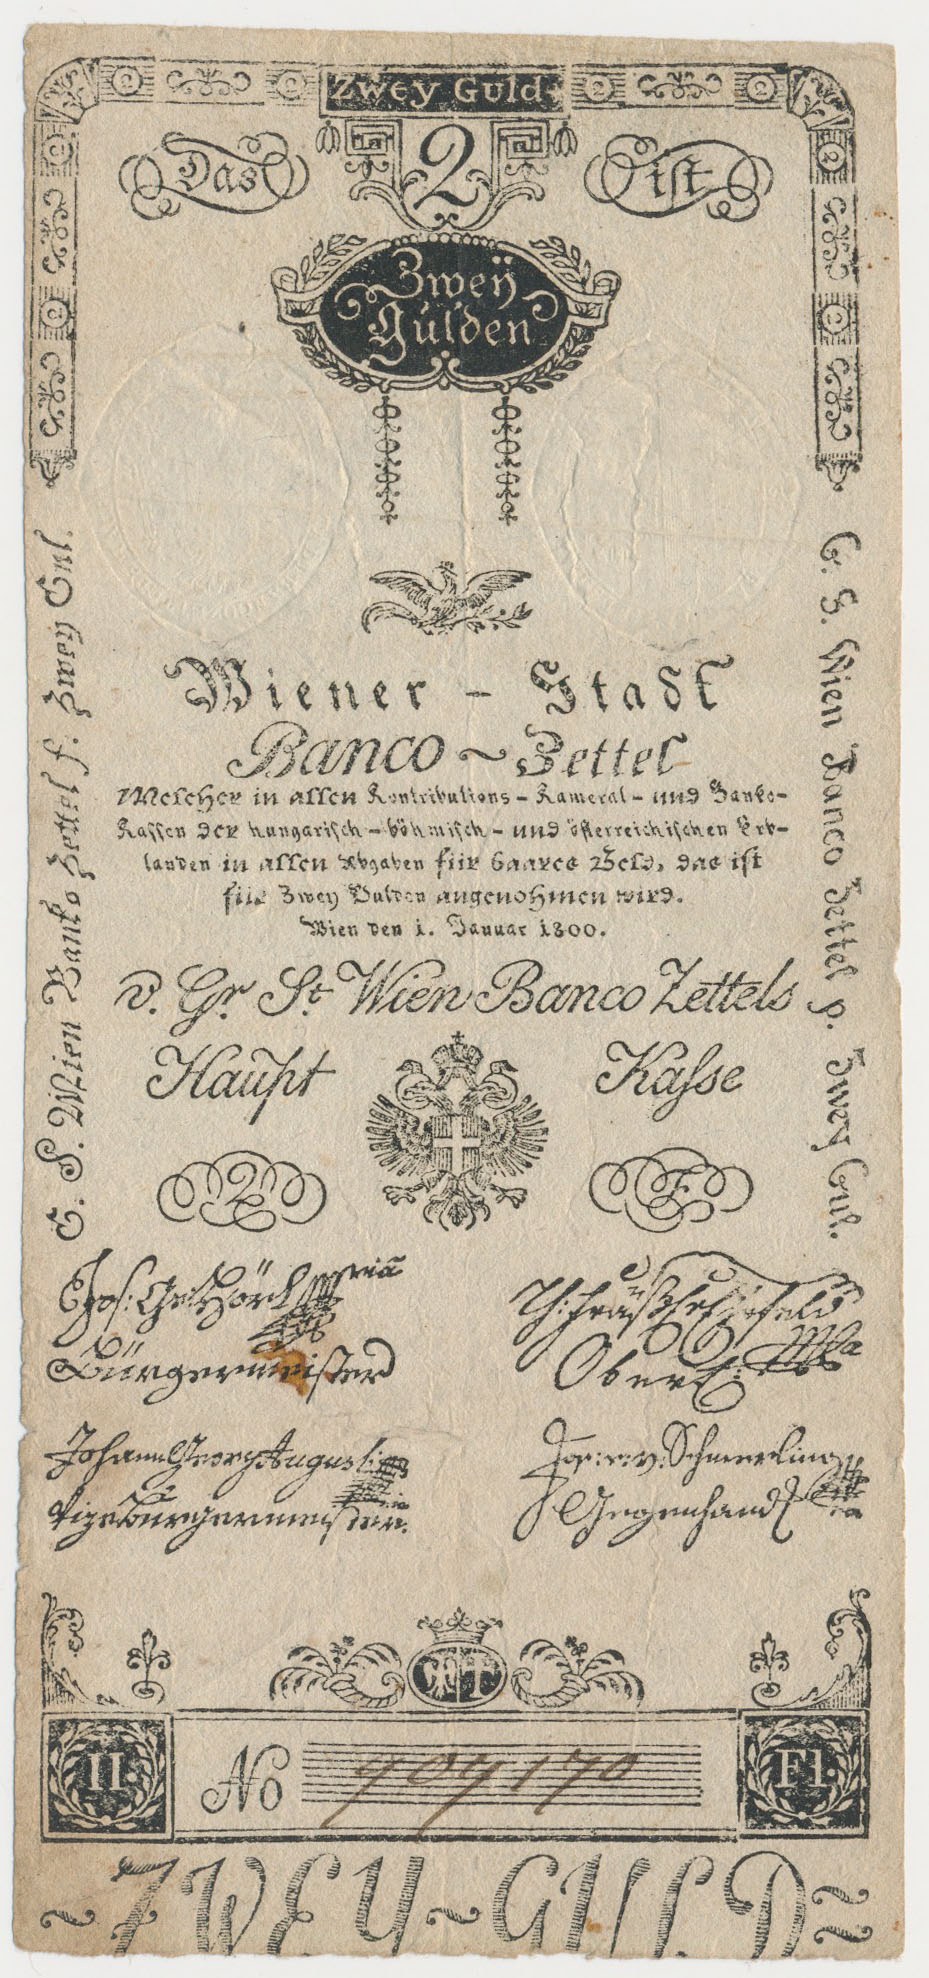 Zwey Guld.
Das 2 ist
Zweÿ
Gulden
Wiener - Stadt
Banco ~ Zettel
Welcher in allen Kontributions - Kameral - und Banko-
Kassen der hungarisch - böhmisch - und österreichischen Erb-
landen in allen Abgaben für baares Geld, das ist
für Zwey Gulden angenohmen wird.
Wien den 1. Januar 1800.
v. Gr. St. Wien Banco Zettels
Haupt Kasse
2 F
Bürgermeister
Johann Georg Augusti
Vizebürgermeister
Jos: v. Schmerling
Gegenhand
G. S. Wien Banko Zettel f. Zwey Gul.
G. S. Wien Banco Zettel p. Zwey Gul.
II. No 707170 Fl.
~ ZWEY ~ GULD ~